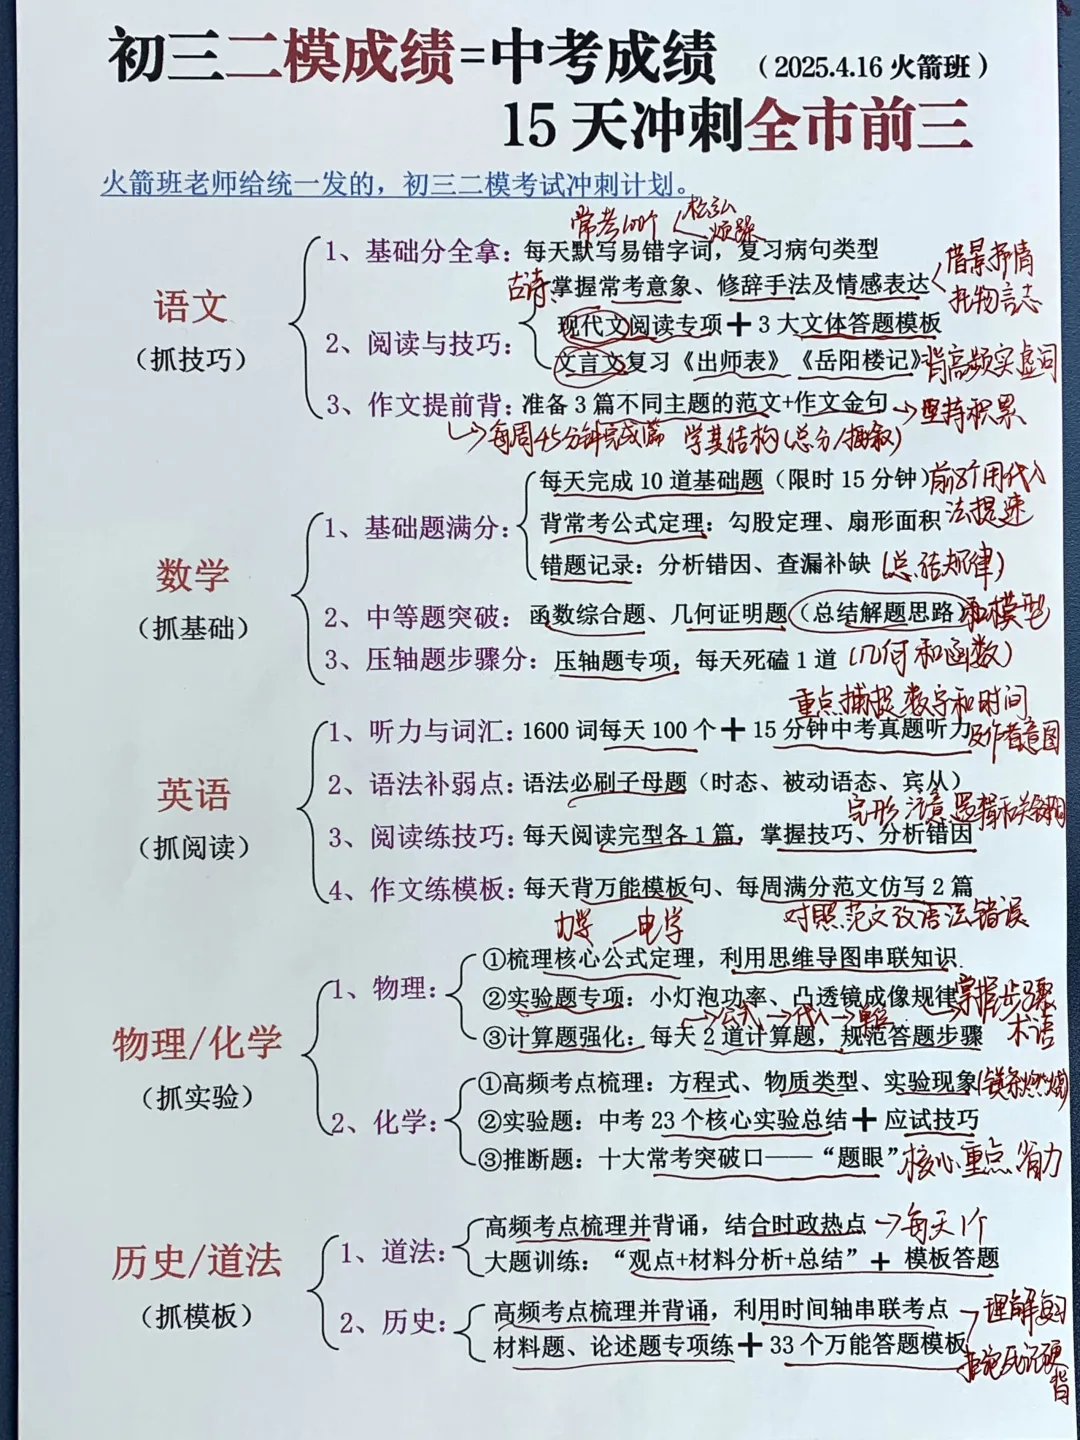 初三二模成绩=中考成绩 （2025.4.16 火箭班）
15 天冲刺全市前三
火箭班老师给统一发的，初三二模考试冲刺计划。
常考100个
松弘
烦躁
1、基础分全拿：每天默写易错字词，复习病句类型
语文
（抓技巧）
2、阅读与技巧：
古诗 掌握常考意象、修辞手法及情感表达
借景抒情
托物言志
现代文阅读专项 + 3 大文体答题模板
文言文复习《出师表》《岳阳楼记》背高频实虚词
3、作文提前背：准备 3 篇不同主题的范文+作文金句→坚持积累
→每周45分钟完成1篇 学其结构(总分/插叙)
数学
（抓基础）
1、基础题满分：
每天完成 10 道基础题（限时 15 分钟）前8个用代入
背常考公式定理：勾股定理、扇形面积 法提速
错题记录：分析错因、查漏补缺（总结规律）
2、中等题突破：函数综合题、几何证明题（总结解题思路）和模型
3、压轴题步骤分：压轴题专项，每天死磕 1 道（几何和函数）
英语
（抓阅读）
重点捕捉数字和时间
1、听力与词汇：1600 词每天 100 个 + 15 分钟中考真题听力及作者意图
2、语法补弱点：语法必刷子母题（时态、被动语态、宾从）
完形注意逻辑和关键词
3、阅读练技巧：每天阅读完型各 1 篇，掌握技巧、分析错因
4、作文练模板：每天背万能模板句、每周满分范文仿写 2 篇
对照范文改语法错误
物理/化学
（抓实验）
力学 电学
1、物理：
①梳理核心公式定理，利用思维导图串联知识.
②实验题专项：小灯泡功率、凸透镜成像规律 掌握步骤
术语
→公式→代入→单位
③计算题强化：每天 2 道计算题，规范答题步骤
2、化学：
①高频考点梳理：方程式、物质类型、实验现象(镁条燃烧)
②实验题：中考 23 个核心实验总结 + 应试技巧
③推断题：十大常考突破口——“题眼”核心重点省力
历史/道法
（抓模板）
1、道法：
高频考点梳理并背诵，结合时政热点→每天1个
大题训练：“观点+材料分析+总结” + 模板答题
2、历史：
高频考点梳理并背诵，利用时间轴串联考点→理解复习
材料题、论述题专项练 + 33 个万能答题模板
死记硬背